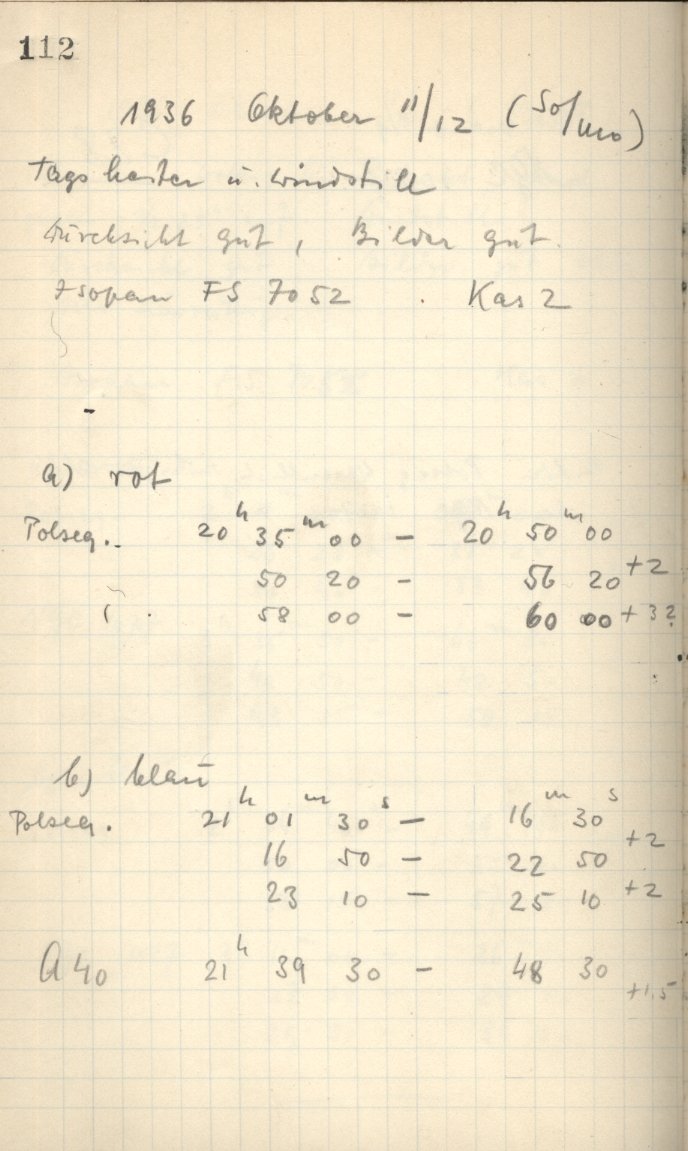 112
1936 Oktober 11/12 (So/Mo)
Tags heiter u. windstill
Durchsicht gut, Bilder gut.
Isopan FS 7052 Kas 2
a) rot
Polseq. 20h 35m 00 – 20h 50m 00
50 20 – 56 20 +2
58 00 – 60 00 +3?
b) blau
Polseq. 21h 01m 30s – 16m 30s
16 50 – 22 50 +2
23 10 – 25 10 +2
A 40 21h 39 30 – 48 30 +1,5